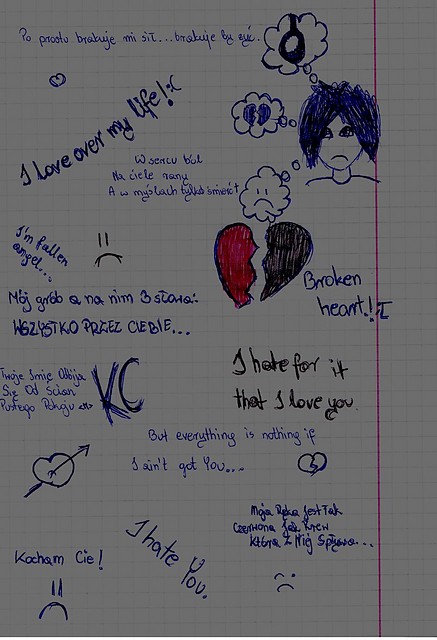 Po prostu brakuje mi sił... brakuje by żyć.
I love over my life!:(
W sercu ból
Na ciele rany
A w myślach tylko śmierć!
I'm fallen
angel...
Broken
heart!:[
Mój grób a na nim 3 słowa:
WSZYSTKO PRZEZ CIEBIE...
I hate for it
that I love you.
Twoje Imię Odbija
Się Od Ścian
Pustego Pokoju
KC
But everything is nothing if
I ain't got You....
Moja Ręka Jest Tak
Czerwona Jak Krew
Która Z Niej Spływa...
I hate You.
Kocham Cie!